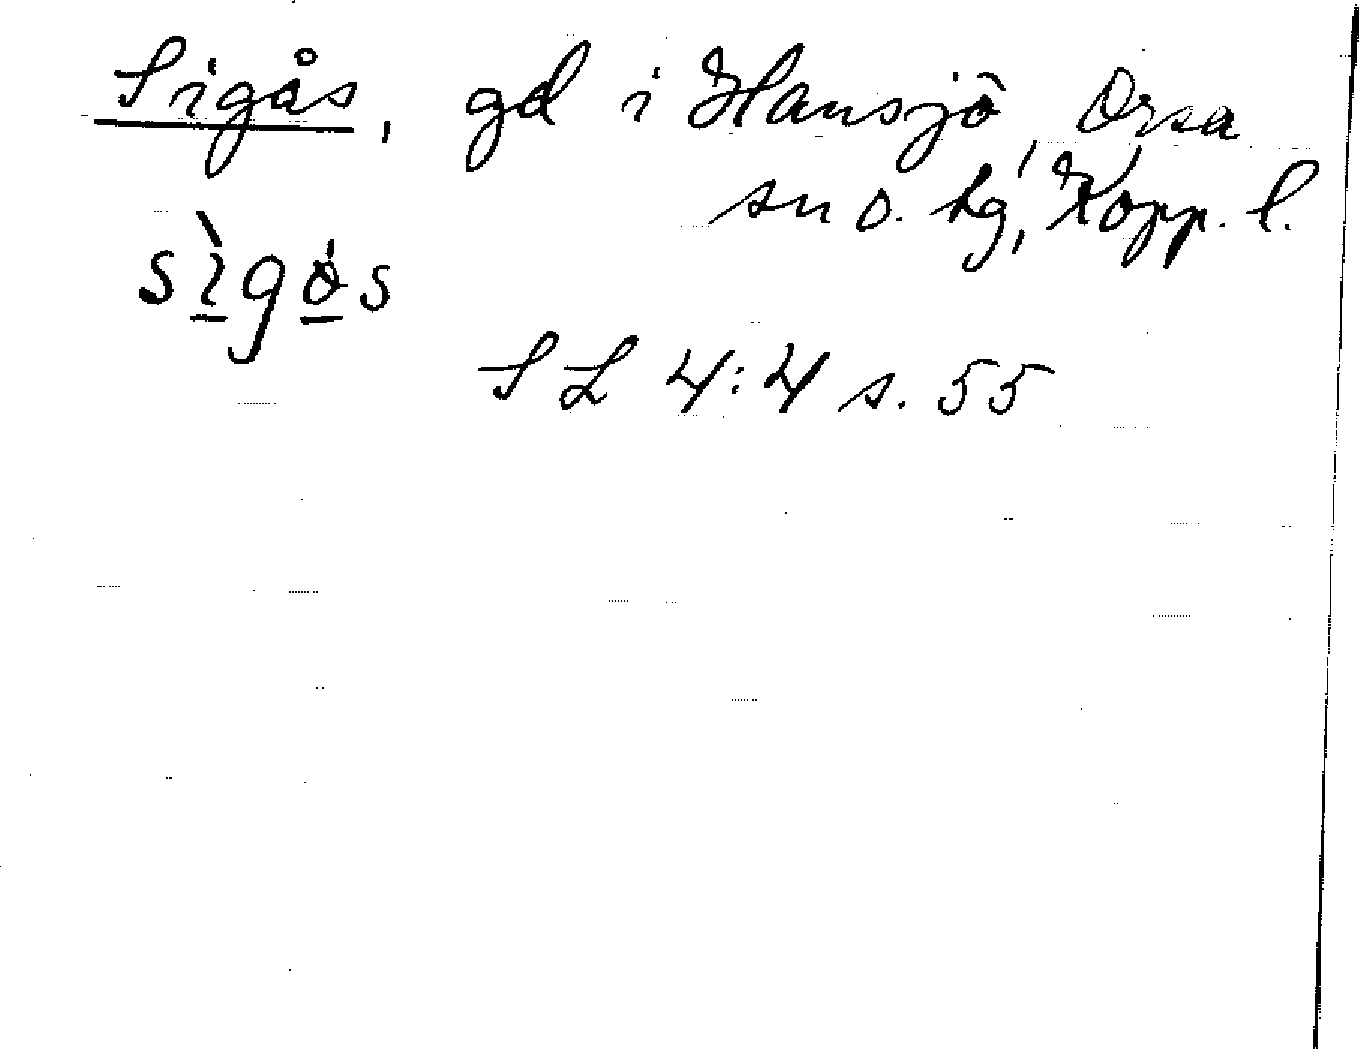 Sigås, gd i Hansjö, Orsa
sn o. hg, Kopp. l.
sìgås
SL 4:4 s. 55